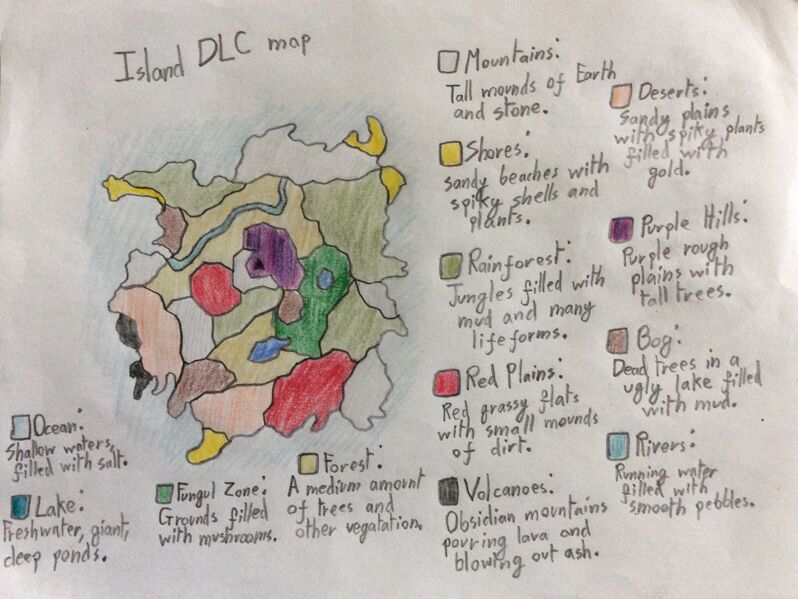 Island DLC map
Mountains:
Tall mounds of Earth
and stone.
Shores:
Sandy beaches with
spiky shells and
plants.
Rainforest:
Jungles filled with
mud and many
lifeforms.
Red Plains:
Red grassy flats
with small mounds
of dirt.
Volcanoes:
Obsidian mountains
pourring lava and
blowing out ash.
Deserts:
Sandy plains
with spiky plants
filled with
gold.
Purple Hills:
Purple rough
plains with
tall trees.
Bog:
Dead trees in a
ugly lake filled
with mud.
Rivers:
Running water
filled with
smooth pebbles.
Ocean:
Shallow waters,
filled with salt.
Lake:
Freshwater, giant,
deep ponds.
Fungul Zone:
Grounds filled
with mushrooms.
Forest:
A medium amount
of trees and
other vegatation.